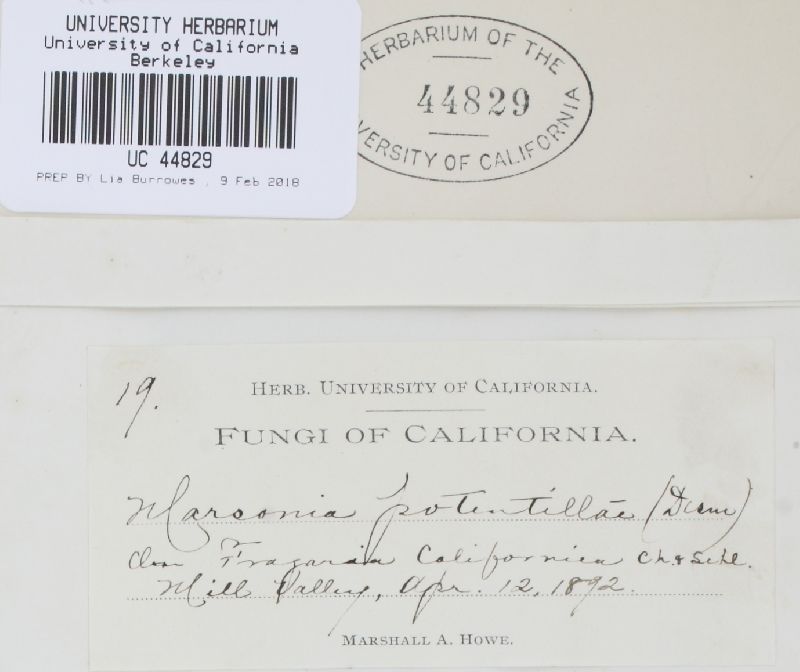 UNIVERSITY HERBARIUM
University of California
Berkeley
UC 44829
PREP BY Lia Burrowes , 9 Feb 2018
HERBARIUM OF THE
44829
VERSITY OF CALIFORNIA
19.
HERB. UNIVERSITY OF CALIFORNIA.
FUNGI OF CALIFORNIA.
Marsonia potentillae (Desm)
On Fragaria Californica Ch. & Schl.
Mill Valley, Apr. 12, 1892.
MARSHALL A. HOWE.